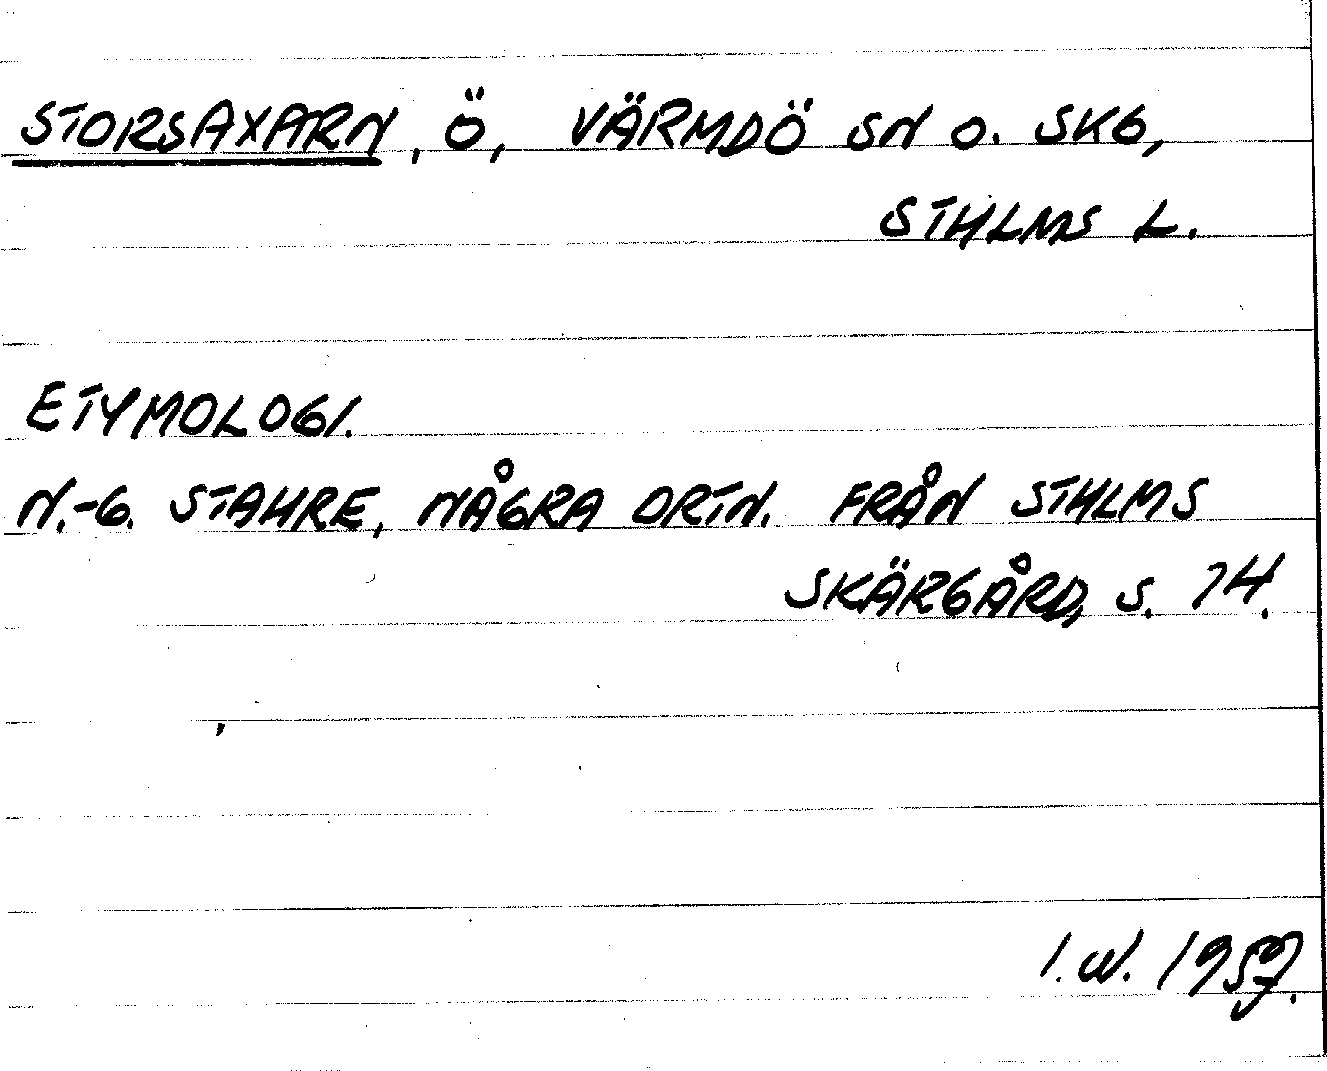 STORSAXARN, Ö, VÄRMDÖ SN O. SKG,
STHLMS L.
ETYMOLOGI.
N.-G. STAHRE, NÅGRA ORTN. FRÅN STHLMS
SKÄRGÅRD, S. 74.
I.W. 1957.